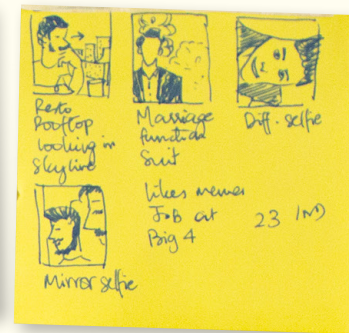 Resto
Rooftop
looking in
Skyline
Marriage
function
Suit
Diff. selfie
Mirror selfie
likes memes
Job at
Big 4
23 IND